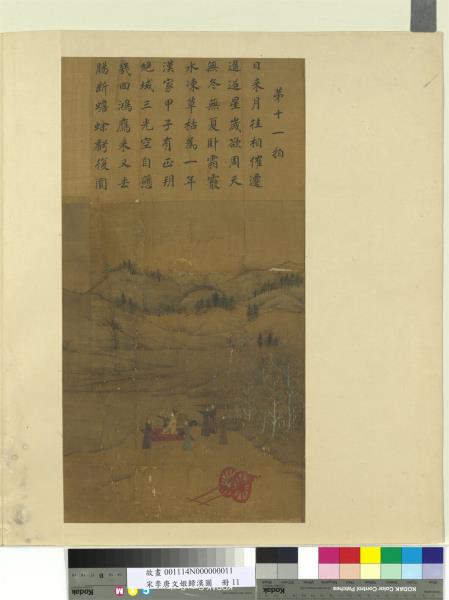 第十一拍
日來月往相催遷
迢迢星歲欲周天
無冬無夏卧霜霰
水凍草枯為一年
漢家甲子有正朔
絕域三光空自懸
幾回鴻鴈來又去
腸斷蟾蜍虧復圓
故畫 001114N000000011
宋李唐文姬歸漢圖 冊 11
Kodak
KODAK Color Control Patches